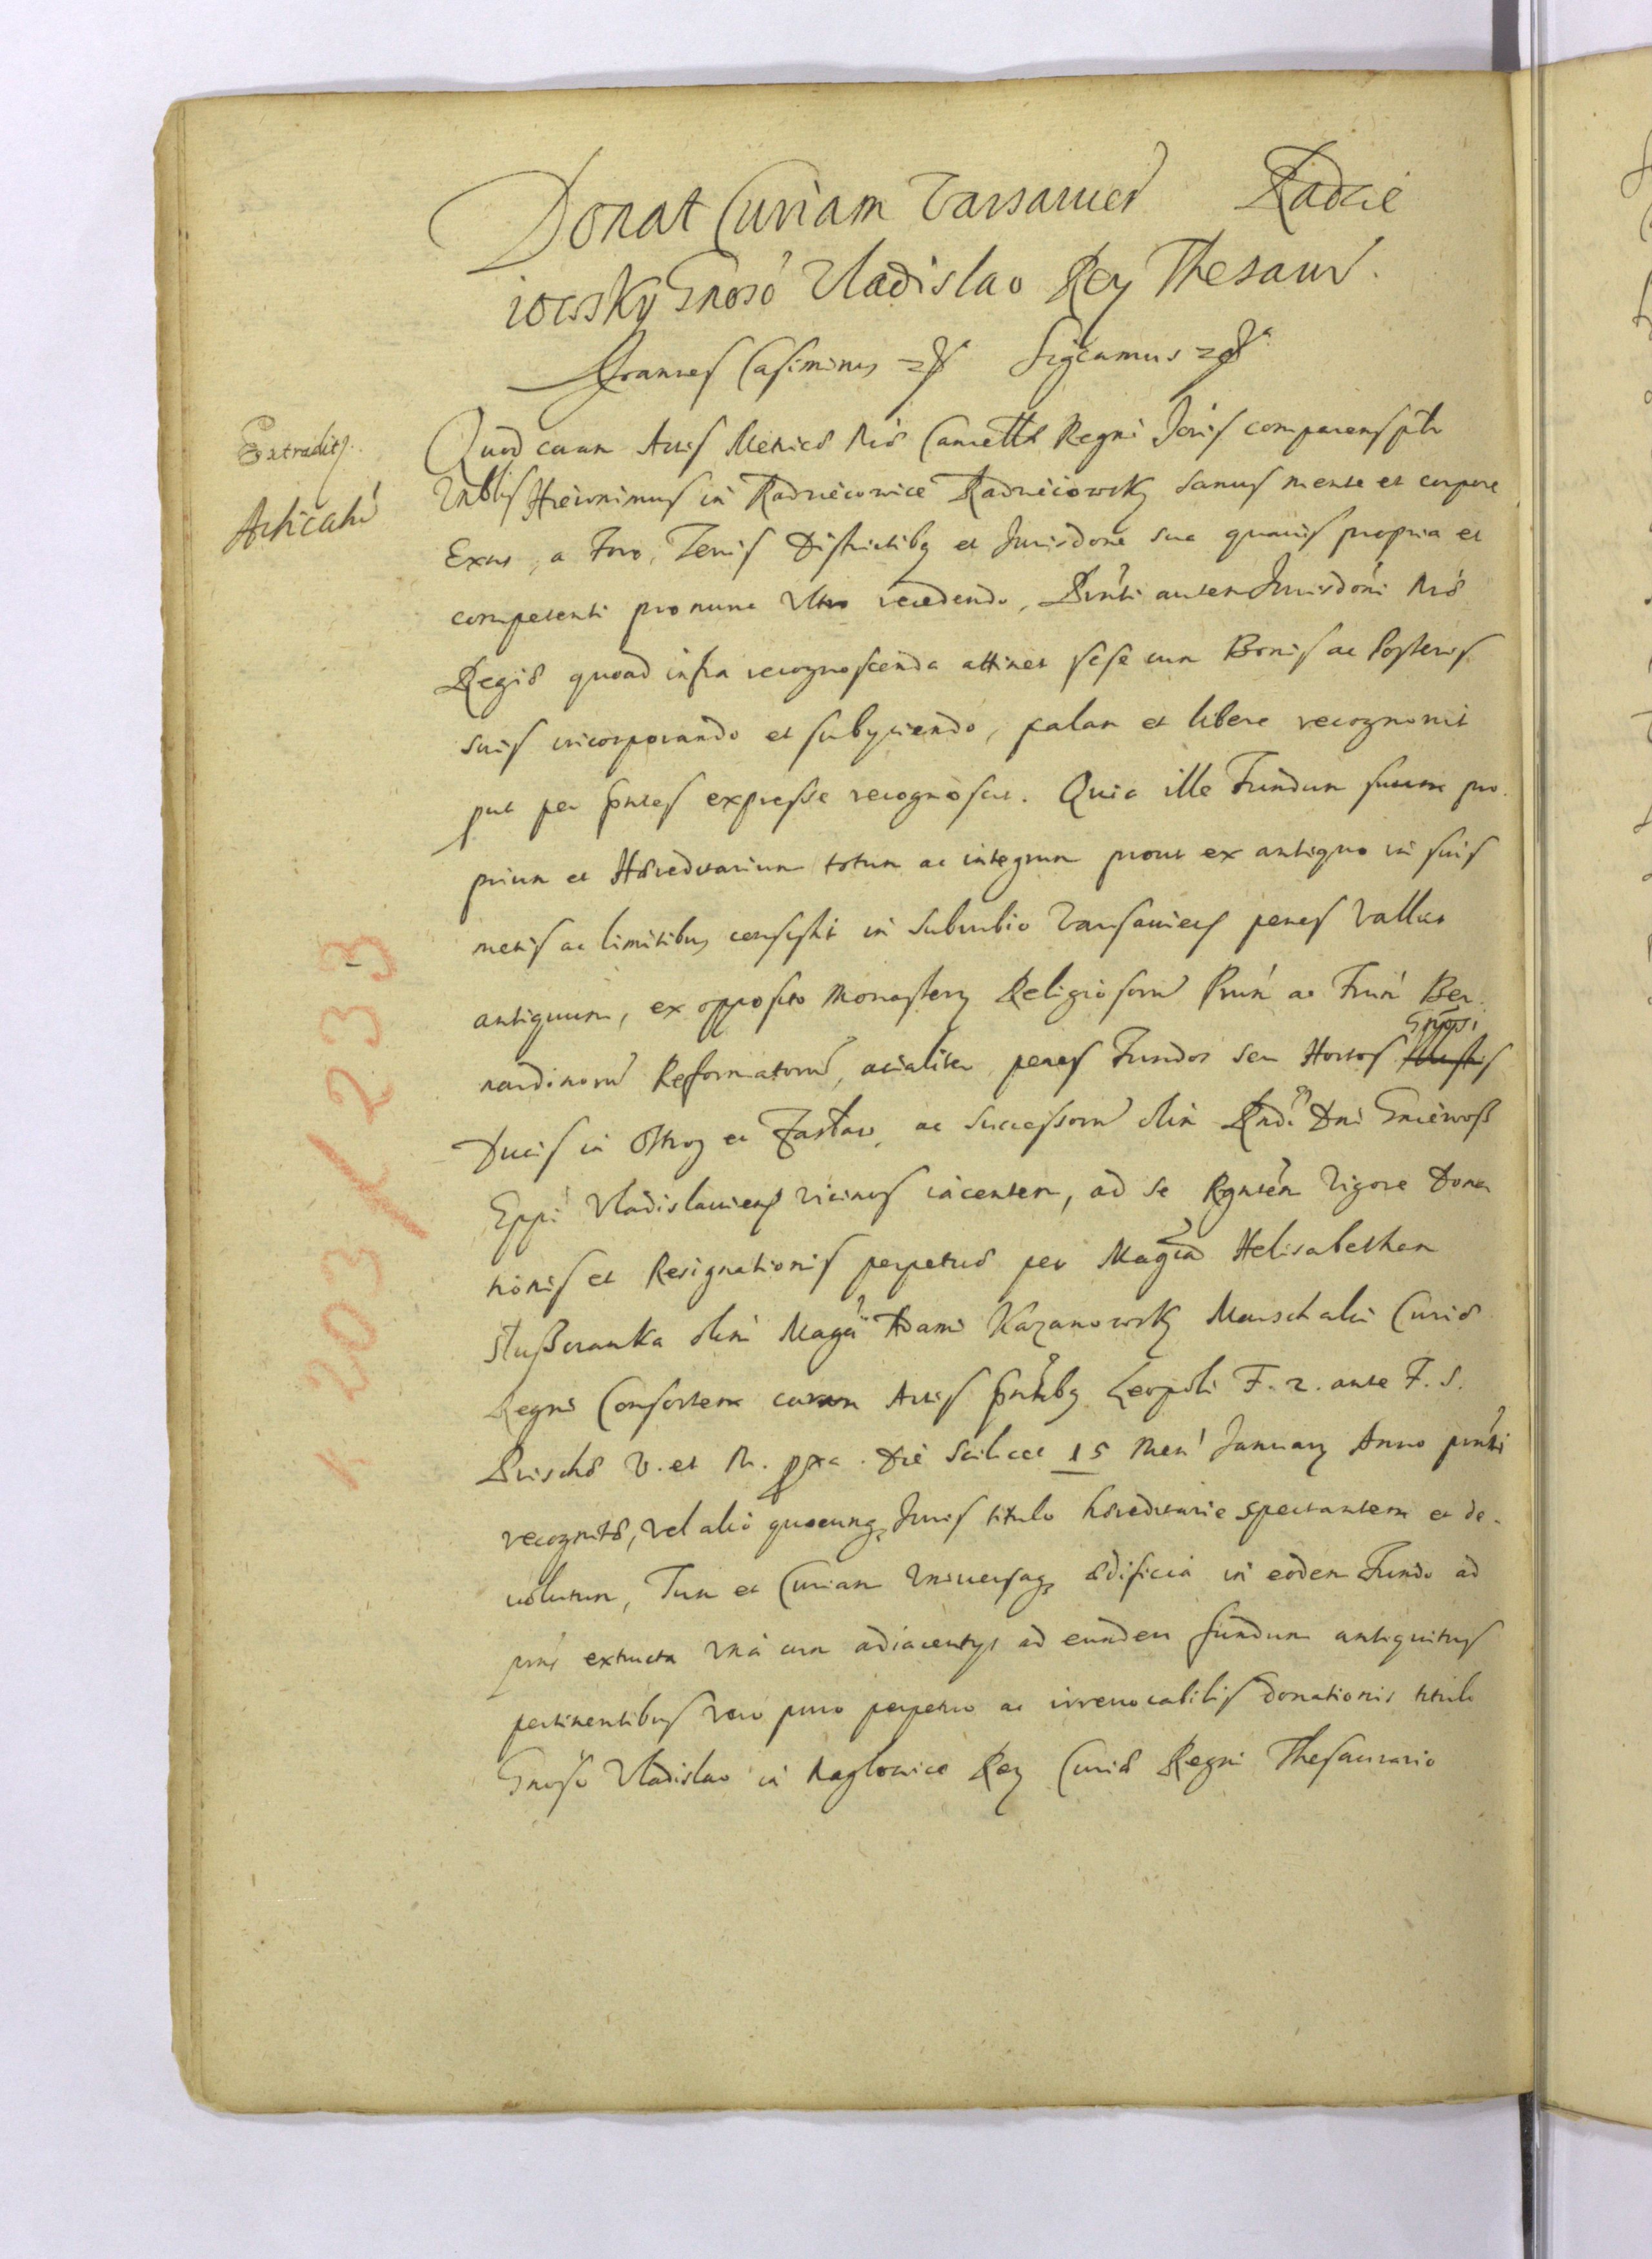 Donat Curiam Varsauien Radzie
iowsky Gnoso Vladislao Rey Thesaur.
Joannes Casimirus Sigcamus
Extradit.
Quod coram Actis Metrices Nrae Cancell Regni Nris comparens pltr
Inblis Hieronimus in Radzieiowice Radzieiowsky sanus mente et corpore
Exns, a Foro, Terris Districtibq et Jurisdone sua quavis propria et
competenti pro nunc Vltro recedendo, Prnti autem Jurisdoni Nrae
Regiae quoad infra recognoscenda attinet sese cum Bonis ac Posteris
suis incorporando et subyciendo, palam et libere recognouit
put per pntes expresse recognoscit. Quia ille Fundum suum pro
prium et Haereditarium totum ac integrum prout ex antiquo in suis
metis ac limitibus consistit in suburbio Varsauien penes Vallum
antiquum, ex opposito Monastery Religiosoru Prum ac Frum Ber
Gnosi
nardinoru Reformatoru, acialiter penes Fundos seu Hortos
Ducis in Ostrog et Zaslaw, ac successoru olim Rndi Dni Gniewosz
Eppi Vladislauien vicinos iacentem, ad se Rgnten Vigore Dona
tionis et Resignationis perpetuae per Magcam Helisabetham
Sluszczanka olim Magci Adami Kazanowsky Marschalci Curiae
Regni Consortem coram Actis pntibq Leopoli F. 2. ante F. S.
Priscae V. et M. pxa. Die scilicet 15 Men January Anno prnti
recognitae, vel alio quocunq Juris titulo haereditarie spectantem et de
uolutum, Tum et Curiam Vniuersaq aedificia in eodem Fundo ad
pns extructa Vna cum adiacentys ad eundem fundum antiquitus
pertinentibus vero puro perpetuo ac irreuocabilis donationis titulo
Gnoso Vladislao in Naglowice Rey Curiae Regni Thesaurario
n 203/233